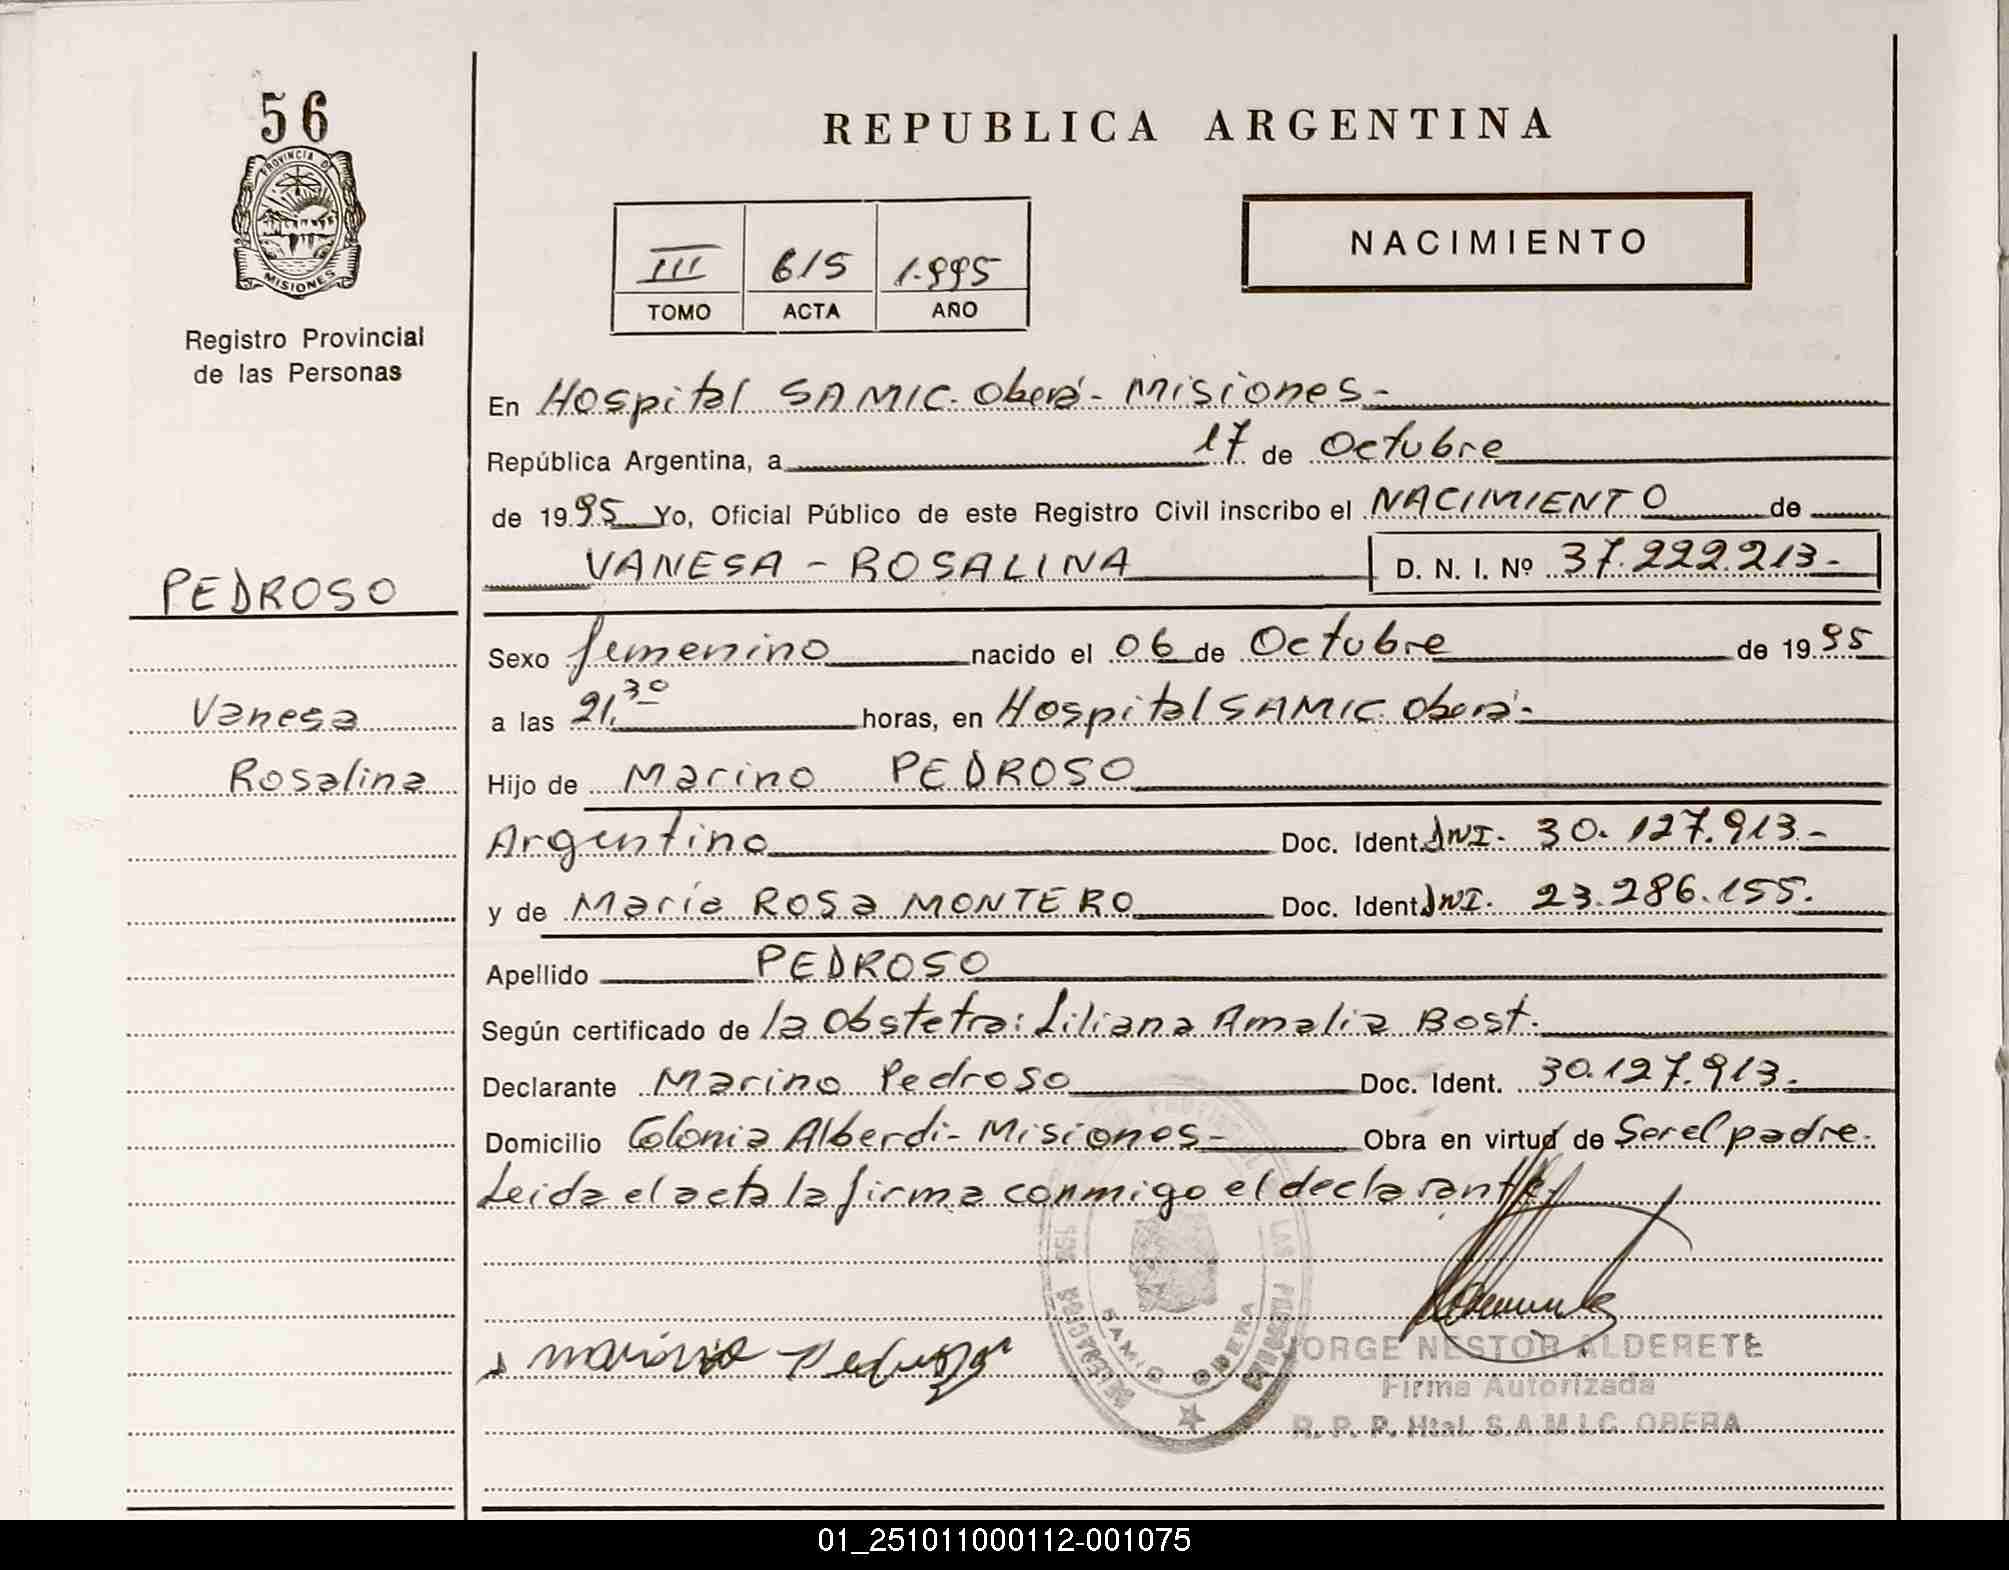 56
PROVINCIA DE
MISIONES
Registro Provincial
de las Personas
PEDROSO
Vanesa
Rosalina
REPUBLICA ARGENTINA
III 615 1.995
TOMO ACTA AÑO
NACIMIENTO
En Hospital SAMIC. Oberá - Misiones -
República Argentina, a 17 de Octubre
de 1995 Yo, Oficial Público de este Registro Civil inscribo el NACIMIENTO de
VANESA - ROSALINA D. N. I. Nº 37.222.213.-
Sexo femenino nacido el 06 de Octubre de 1995
a las 21,30 horas, en Hospital SAMIC. Oberá -
Hijo de Marino PEDROSO
Argentino Doc. Ident. DNI. 30.127.913.-
y de María ROSA MONTERO Doc. Ident. DNI. 23.286.155.
Apellido PEDROSO
Según certificado de la Obstetra: Liliana Amalia Bost.
Declarante Marino Pedroso Doc. Ident. 30.127.913.
Domicilio Colonia Alberdi - Misiones - Obra en virtud de Ser el padre.
Leida el acta la firma conmigo el declarante
JORGE NESTOR ALDERETE
Firma Autorizada
R. P. P. Htal. S.A.M.I.C. OBERA
SAMIC OBERA
01_251011000112-001075